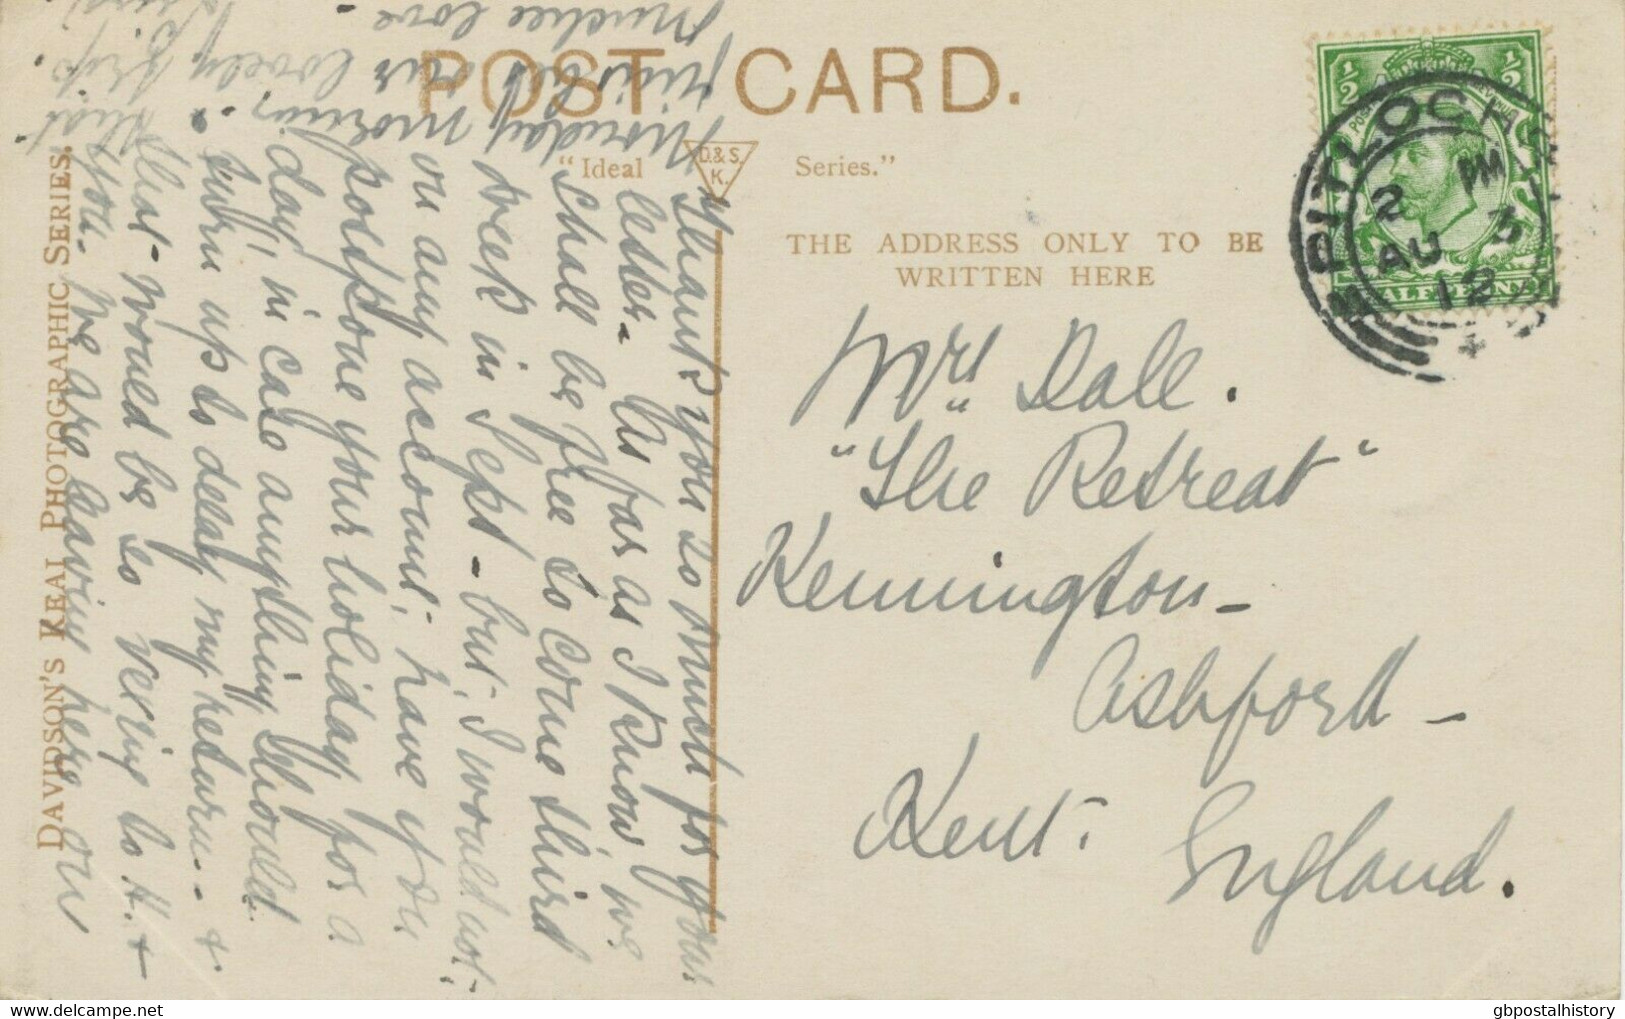 POST CARD.
"Ideal D.&S. K. Series."
THE ADDRESS ONLY TO BE
WRITTEN HERE
DAVIDSON'S REAL PHOTOGRAPHIC SERIES.
½ ½
HALFPENNY
PITLOCHRY
2 PM
AU 3
12
Mrs Dale.
"The Retreat"
Kennington –
Ashford –
Kent.
England.
Thank you so much for your
letter – As far as I know, we
shall be free to come third
week in Sept – but, I would not,
on any account, have you
postpone your holiday for a
day, in case anything should
turn up to delay my return – +
that would be so vexing to H. +
you. We are leaving here on
Monday morning.
our lovely trip.
Muchee love –
gbpostalhistory